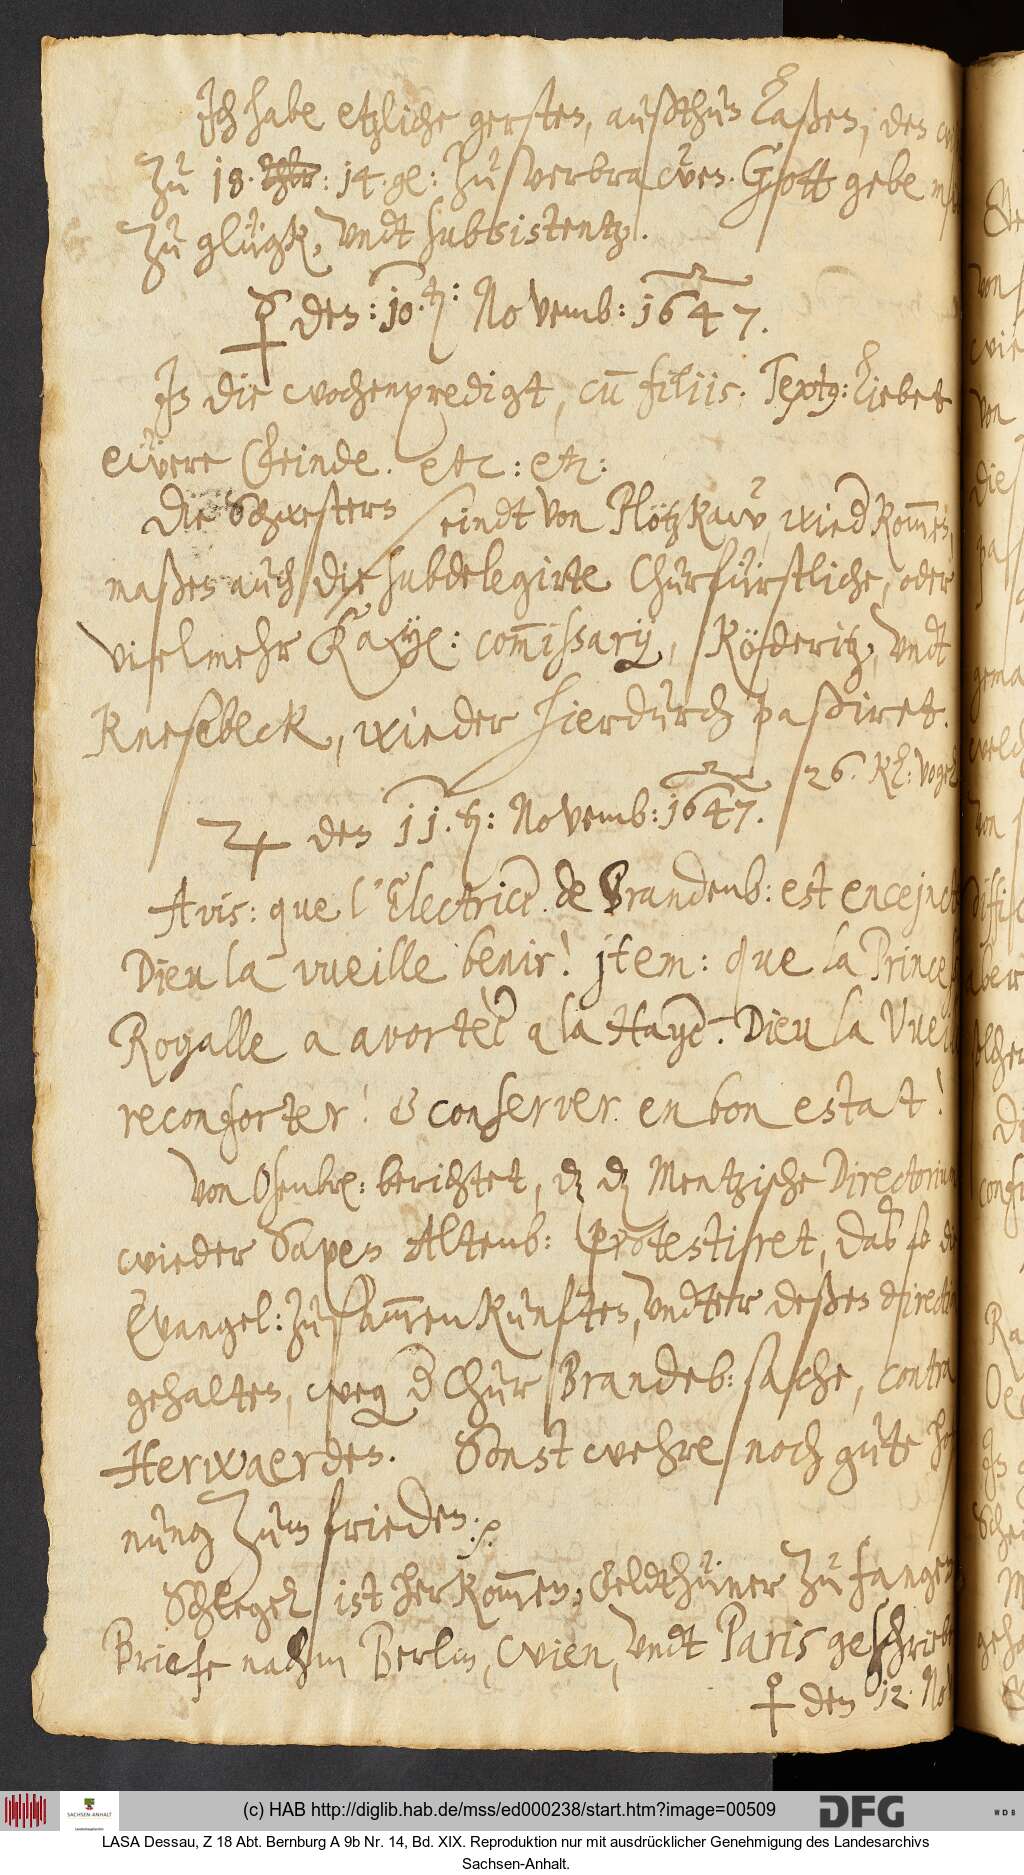 Ich habe etzliche gersten, außthun laßen, den
Zu 18. 14. gl: Zu verbrawen. Gott gebe
Zu glügk, vndt subsistentz.
☿ den: 10. ten: Novemb: 1647.
In die wochenpredigt, cum filiis. Textus: Liebet
ewere Feinde. etc: etc:
Die Schwestern seindt von Plötzkaw, wieder kommen,
maßen auch die subdelegirte Churfürstliche, oder
vielmehr Kayserl: commissarij, Röderitz, vndt
Knesebeck, wieder hierdurch paßiret.
26. Kl: Vogel
♃ den 11. ten: Novemb: 1647.
Avis: que l'Electrice de Brandenb: est enceinct
Dieu la vueille benir! jtem: que la Princesse
Royalle a avortèe a la Haye. Dieu la Vueille
reconforter! & conserver en bon estat!
Von Osenbr: berichtet, daß daß Mentzische Directorium
wieder Saxen Altenb: protestiret, daß so die
Evangel: zusammenkunften, vndter deßen directio
gehalten, wegen der Chur Brandeb: sache, contra
Herwaerden. Sonst wehre noch gute hof
nung Zum frieden.
Schlegel ist her kommen, Feldthüner Zu fangen
Briefe nachm Berlin, Wien, vndt Paris geschrieben
♀ den 12. Nov
(c) HAB http://diglib.hab.de/mss/ed000238/start.htm?image=00509
DFG
WDB
SACHSEN-ANHALT
LASA Dessau, Z 18 Abt. Bernburg A 9b Nr. 14, Bd. XIX. Reproduktion nur mit ausdrücklicher Genehmigung des Landesarchivs
Sachsen-Anhalt.